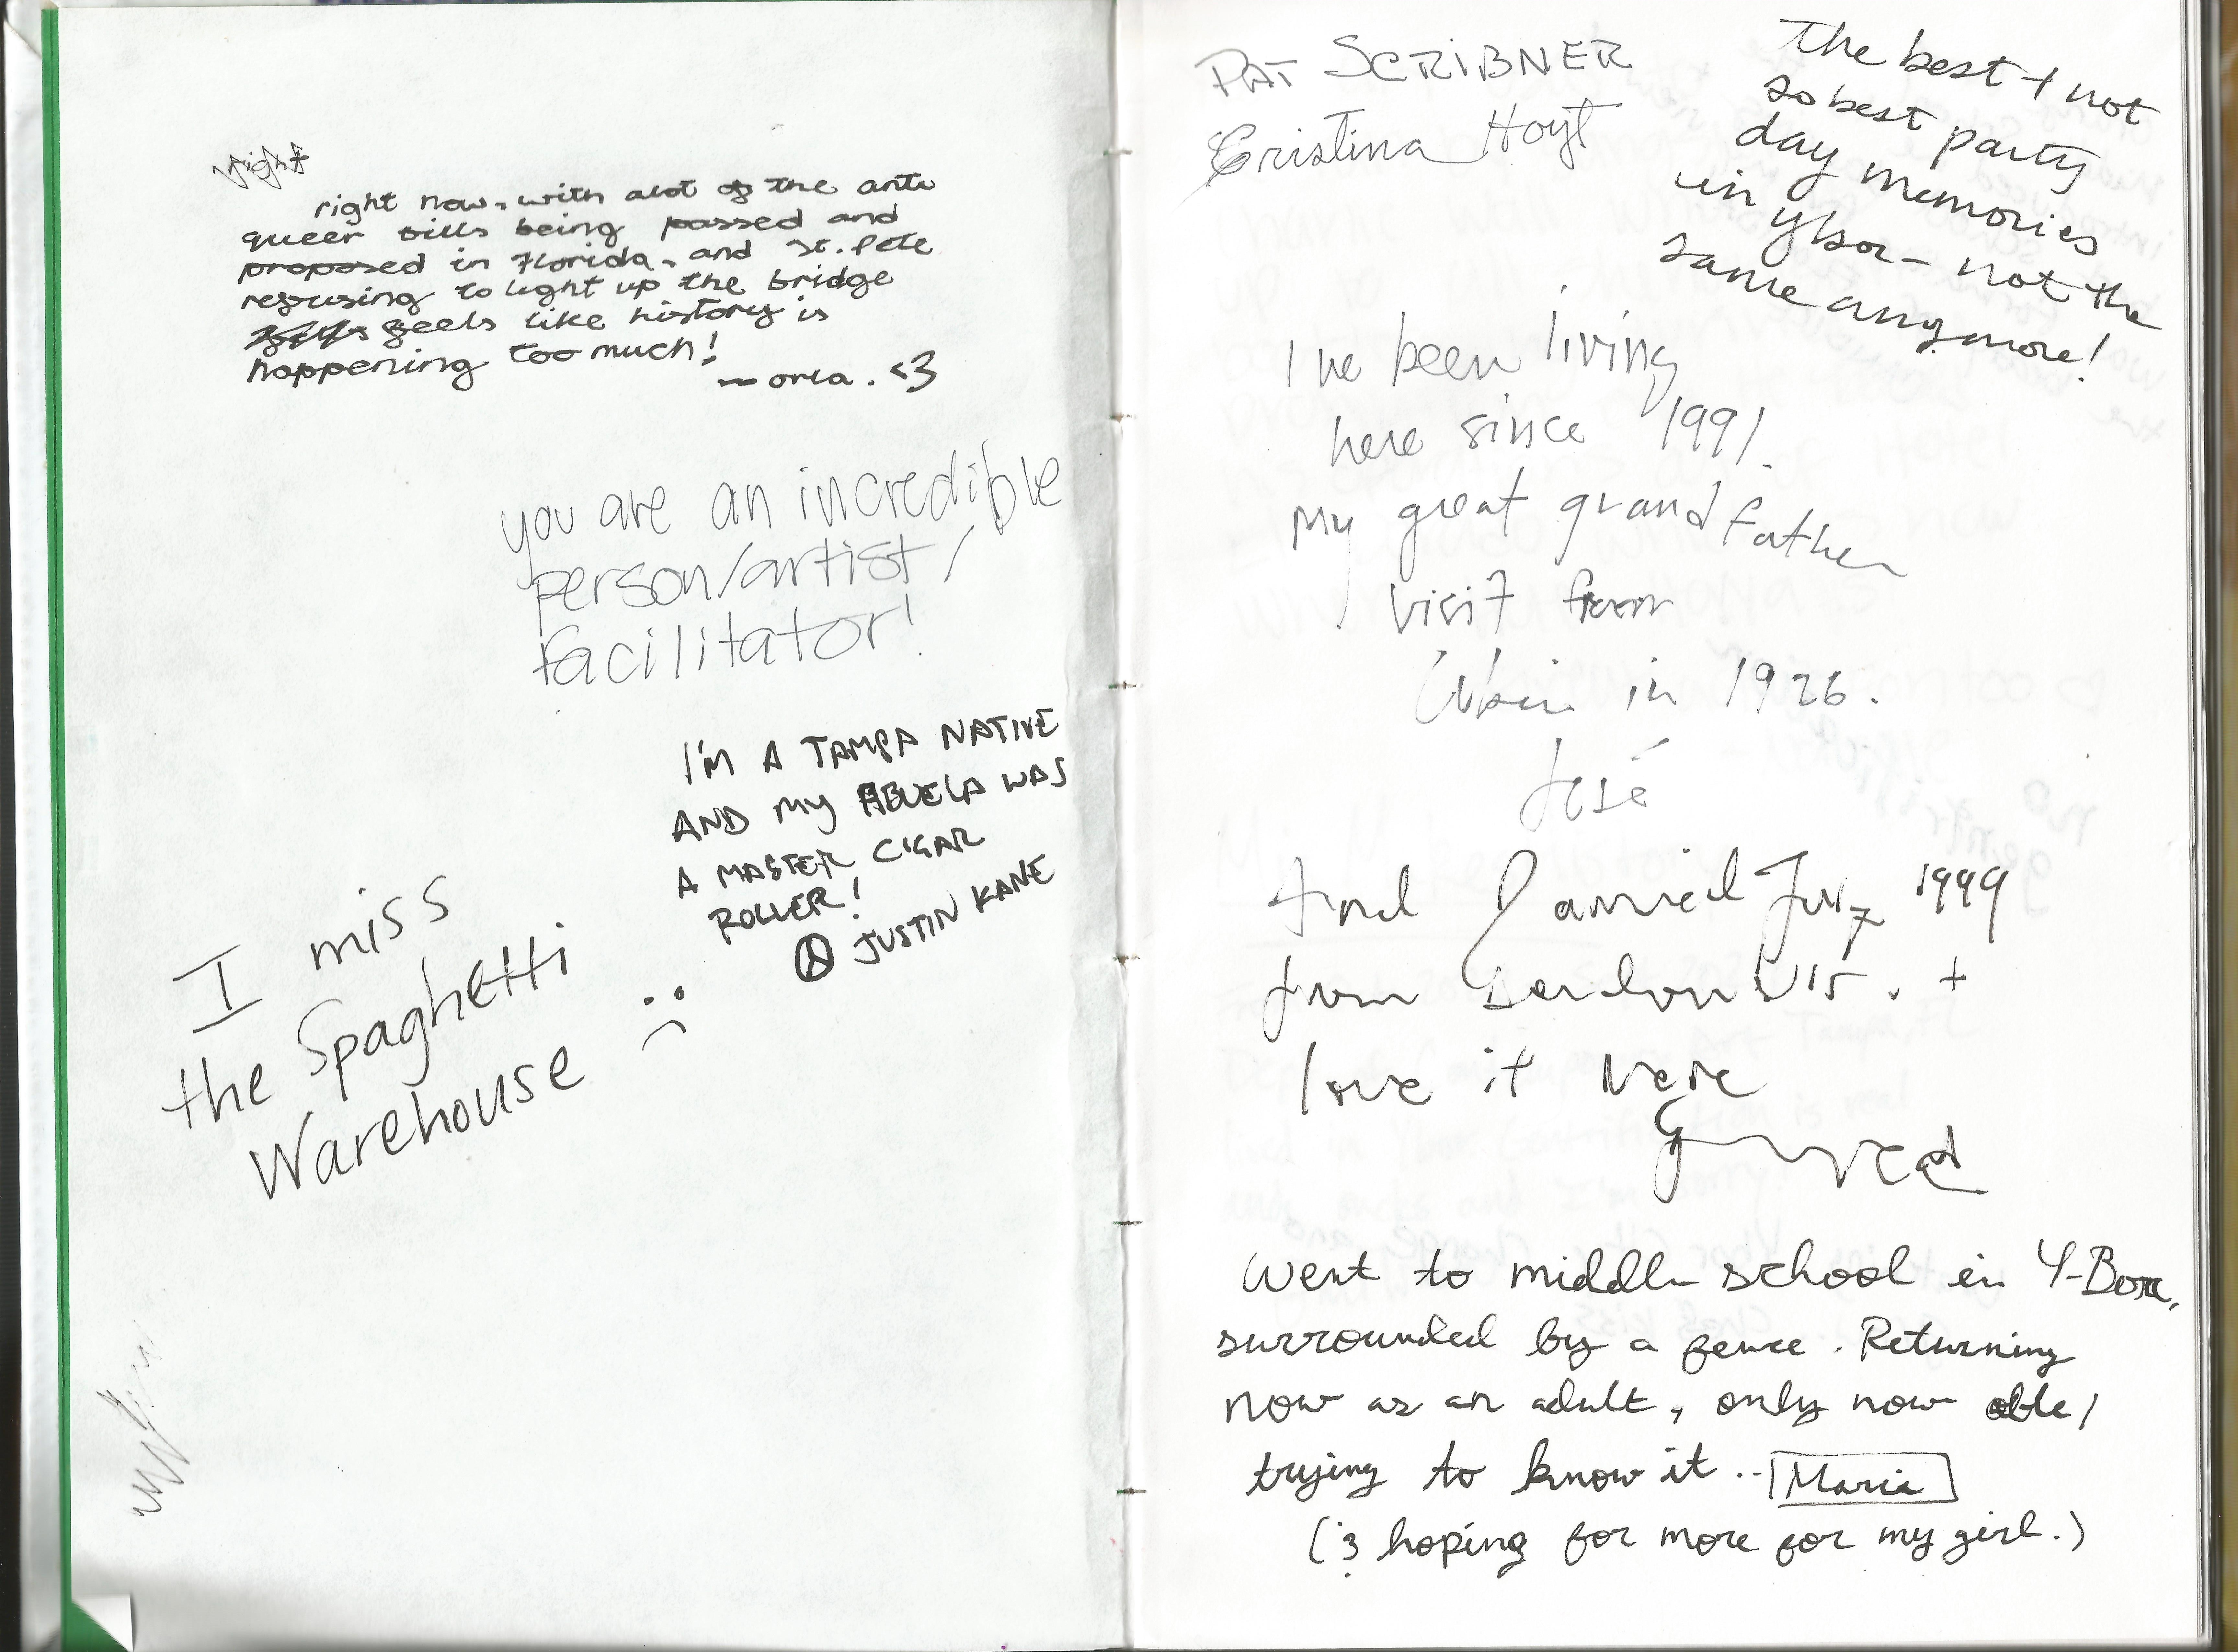 right
right now, with alot of the anti
queer bills being passed and
proposed in Florida, and St. Pete
refusing to light up the bridge
feels like history is
happening too much!
— orla. <3
you are an incredible
person/artist/
facilitator!
I'M A TAMPA NATIVE
AND MY ABUELA WAS
A MASTER CIGAR
ROLLER!
JUSTIN KANE
I miss
the Spaghetti
Warehouse :(
PAT SCRIBNER
Cristina Hoyt
The best + not
so best party
day memories
in ybor - not the
same anymore!
I've been living
here since 1991.
My great grandfather
visit from
in 1926.
José
And I arrived July 1999
from London
love it here
Went to middle school in Y-Bor,
surrounded by a fence. Returning
now as an adult, only now able/
trying to know it.. Maria
(& hoping for more for my girl.)